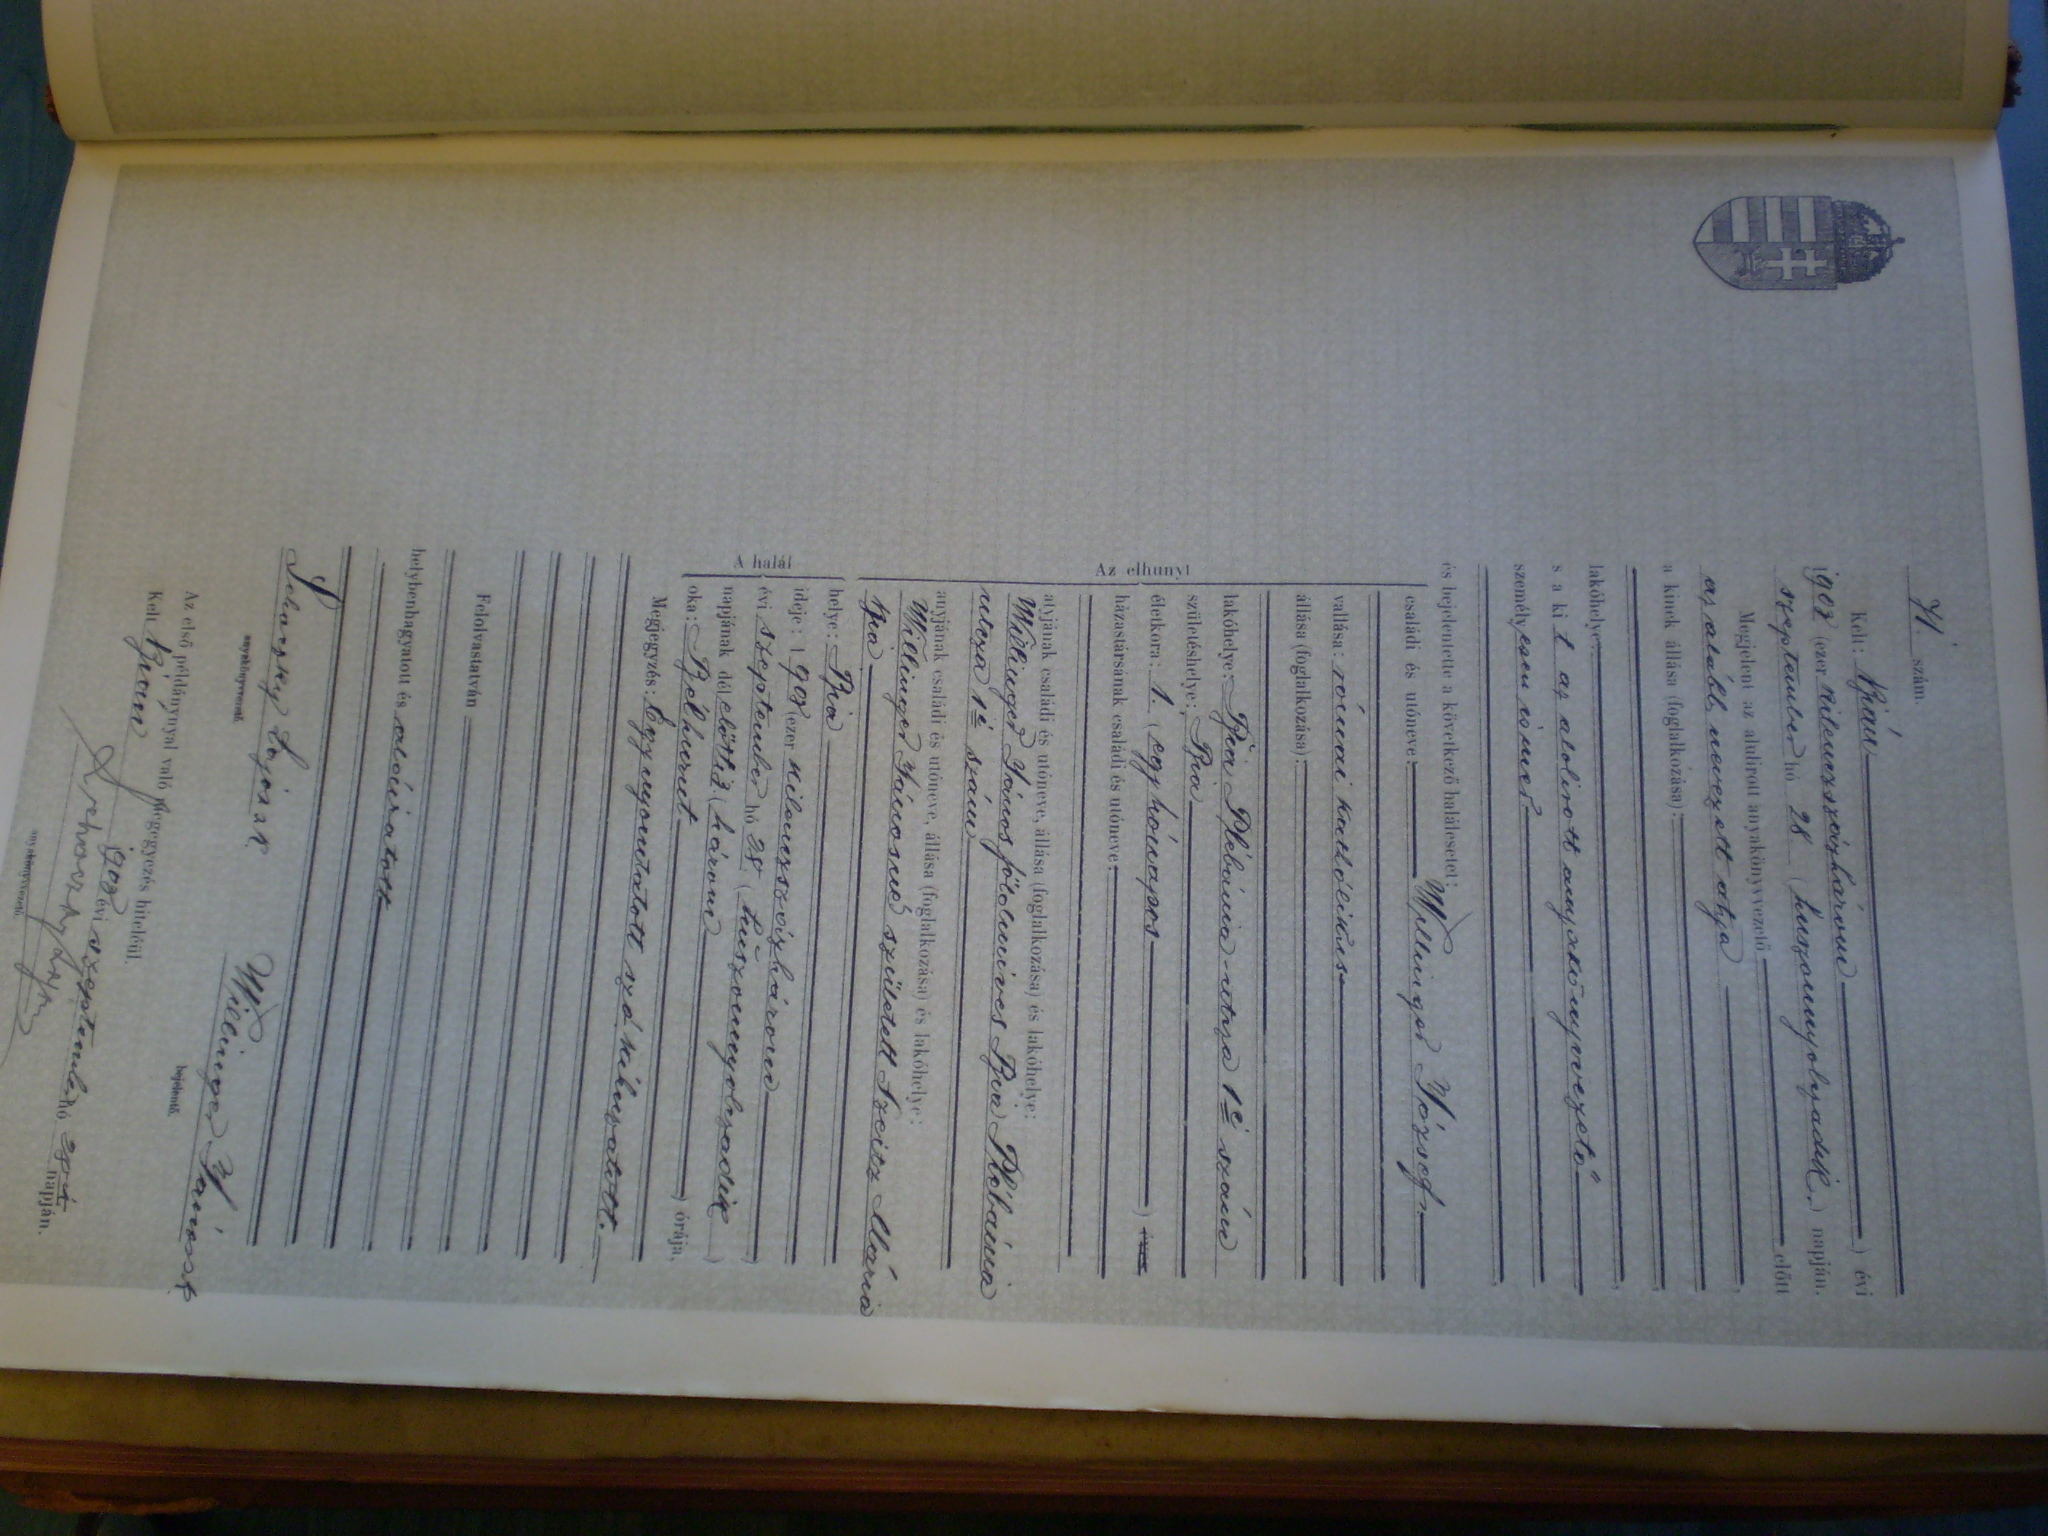 71. szám.
Kelt: Bián
1903 (ezer kilenczszázhárom ) évi
szeptember hó 28 (huszonnyolczadik) napján.
Megjelent az alulirott anyakönyvvezető előtt
az alább nevezett atya
a kinek állása (foglalkozása):
lakóhelye
s a ki t az alolirott anyakönyvvezető
személyesen ismer
és bejelentette a következő halálesetet:
családi és utóneve: Willinger József.
vallása: római katholikus
állása (foglalkozása):
lakóhelye: Bia Plébánia-utcza 1é szám
születéshelye: Bia
életkora: 1. (egy hónapos )
házastársának családi és utóneve:
Az elhunyt
atyjának családi és utóneve, állása (foglalkozása) és lakóhelye:
Willinger János földmíves Bia Plébánia
utcza 1é szám
anyjának családi és utóneve, állása (foglalkozása) és lakóhelye:
Willinger Jánosné született Szeitz Mária
Bia
A halál
helye: Bia
ideje: 1903 (ezer kilenczszázhárom )
évi szeptember hó 28 (huszonnyolczadik )
napjának dél előtti 3 (három ) órája.
oka: Bélhurut.
Megjegyzés: Egy nyomtatott szó kihuzatott.
Felolvastatván
helybenhagyatott és aláiratott
Willinger János
anyakönyvvezető. bejelentő.
Az első példánynyal való megegyezés hiteléül.
Kelt Bián 1903 évi szeptember hó 28 napján.
anyakönyvvezető